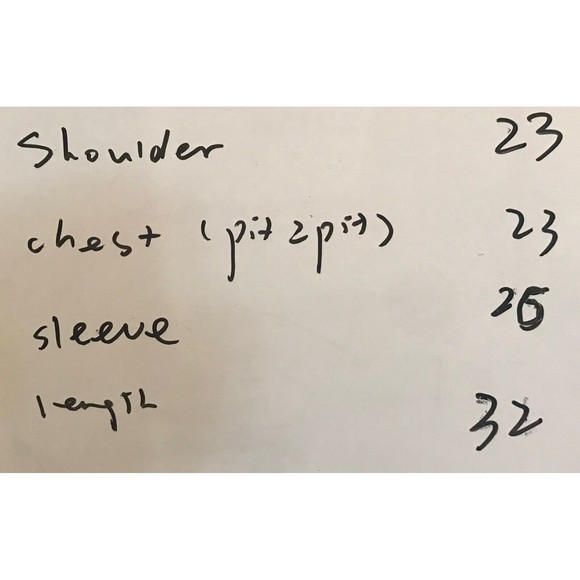 Shoulder 23
chest (pit 2 pit) 23
sleeve
length 32